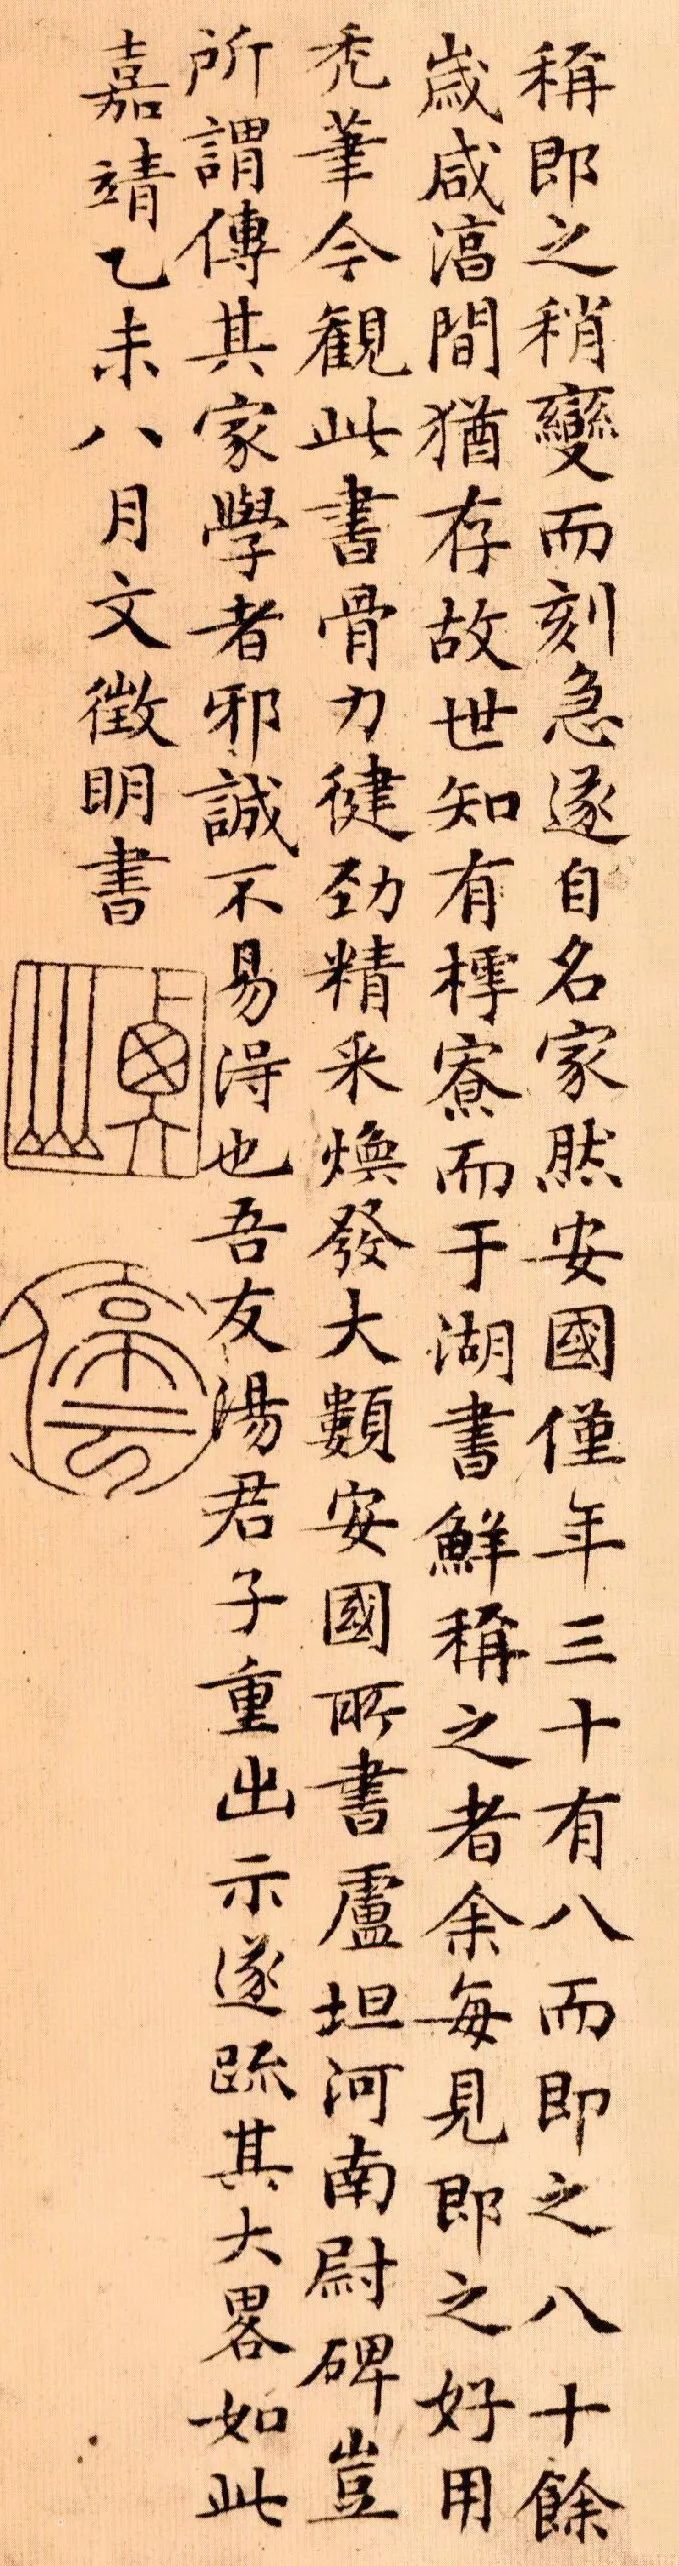 稱即之稍變而刻急遂自名家然安國僅年三十有八而即之八十餘
歲咸淳間猶存故世知有樗寮而于湖書鮮稱之者余每見即之好用
禿筆今觀此書骨力健勁精采煥發大類安國所書盧坦河南尉碑豈
所謂傳其家學者邪誠不易得也吾友湯君子重出示遂疏其大畧如此
嘉靖乙未八月文徵明書
停雲